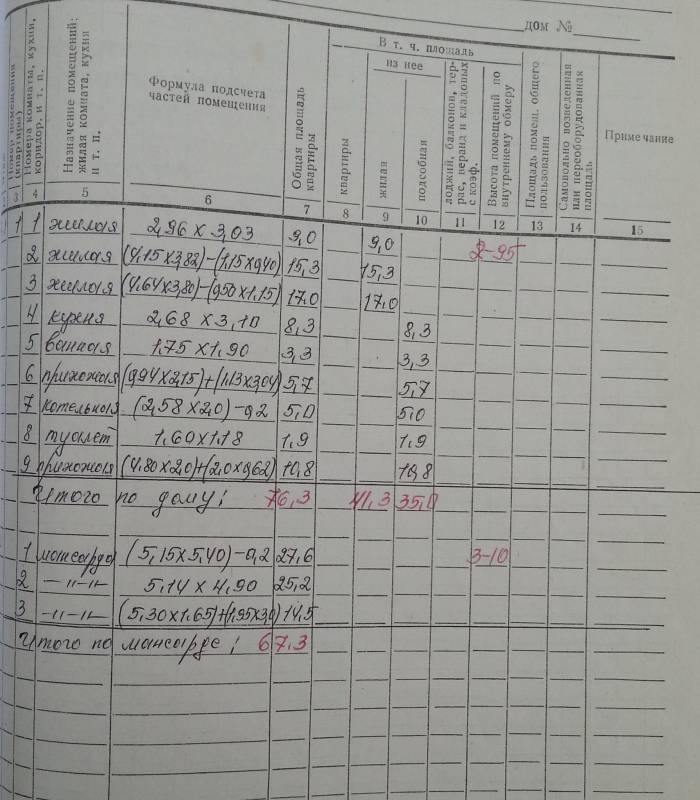 дом №
Номер помещения (квартиры)
Номера комнаты, кухни, коридор. и т. п.
Назначение помещений: жилая комната, кухня и т. п.
Формула подсчета частей помещения
Общая площадь квартиры
В т. ч. площадь
квартиры
из нее
жилая
подсобная
лоджий, балконов, террас, веранд и кладовых с коэф.
Высота помещений по внутреннему обмеру
Площадь помещ. общего пользования
Самовольно возведенная или переоборудованная площадь
Примечание
3 4 5 6 7 8 9 10 11 12 13 14 15
1 1 жилая 2,96 х 3,03 9,0 9,0 2-95
2 жилая (4,15х3,82)-(1,15х0,40) 15,3 15,3
3 жилая (4,64х3,80)-(0,50х1,15) 17,0 17,0
4 кухня 2,68 х 3,10 8,3 8,3
5 ванная 1,75 х 1,90 3,3 3,3
6 прихожая (0,94х2,15)+(1,13х3,04) 5,7 5,7
7 котельная (2,58 х 2,0) - 0,2 5,0 5,0
8 туалет 1,60х1,18 1,9 1,9
9 прихожая (4,80х2,0)+(2,0х0,62) 10,8 10,8
Итого по дому: 76,3 41,3 35,0
1 мансарда (5,15х5,40)-0,2 27,6 3-10
2 -"-"- 5,14 х 4,90 25,2
3 -"-"- (5,30х1,65)+(1,95х3,0) 14,5
Итого по мансарде: 67,3